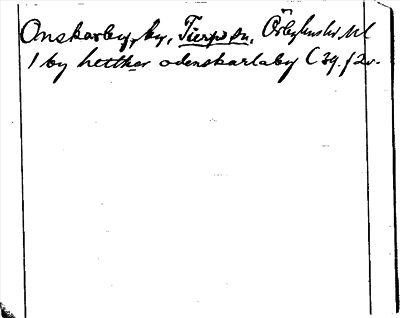 Onskarby, by, Tierps sn, Örbyhus hd, Upl
1 by hetther odenskarlaby C 39. f 2v.